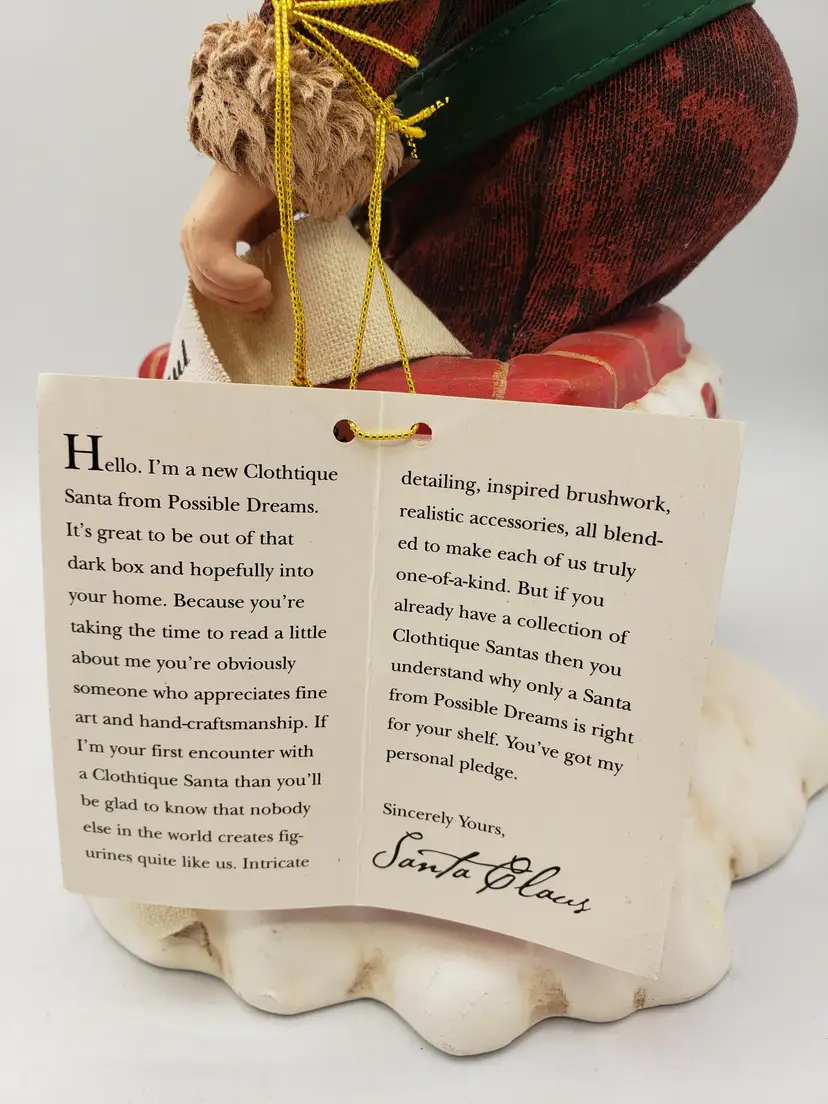 Hello. I'm a new Clothtique
Santa from Possible Dreams.
It's great to be out of that
dark box and hopefully into
your home. Because you're
taking the time to read a little
about me you're obviously
someone who appreciates fine
art and hand-craftsmanship. If
I'm your first encounter with
a Clothtique Santa than you'll
be glad to know that nobody
else in the world creates fig-
urines quite like us. Intricate
detailing, inspired brushwork,
realistic accessories, all blend-
ed to make each of us truly
one-of-a-kind. But if you
already have a collection of
Clothtique Santas then you
understand why only a Santa
from Possible Dreams is right
for your shelf. You've got my
personal pledge.
Sincerely Yours,
Santa Claus